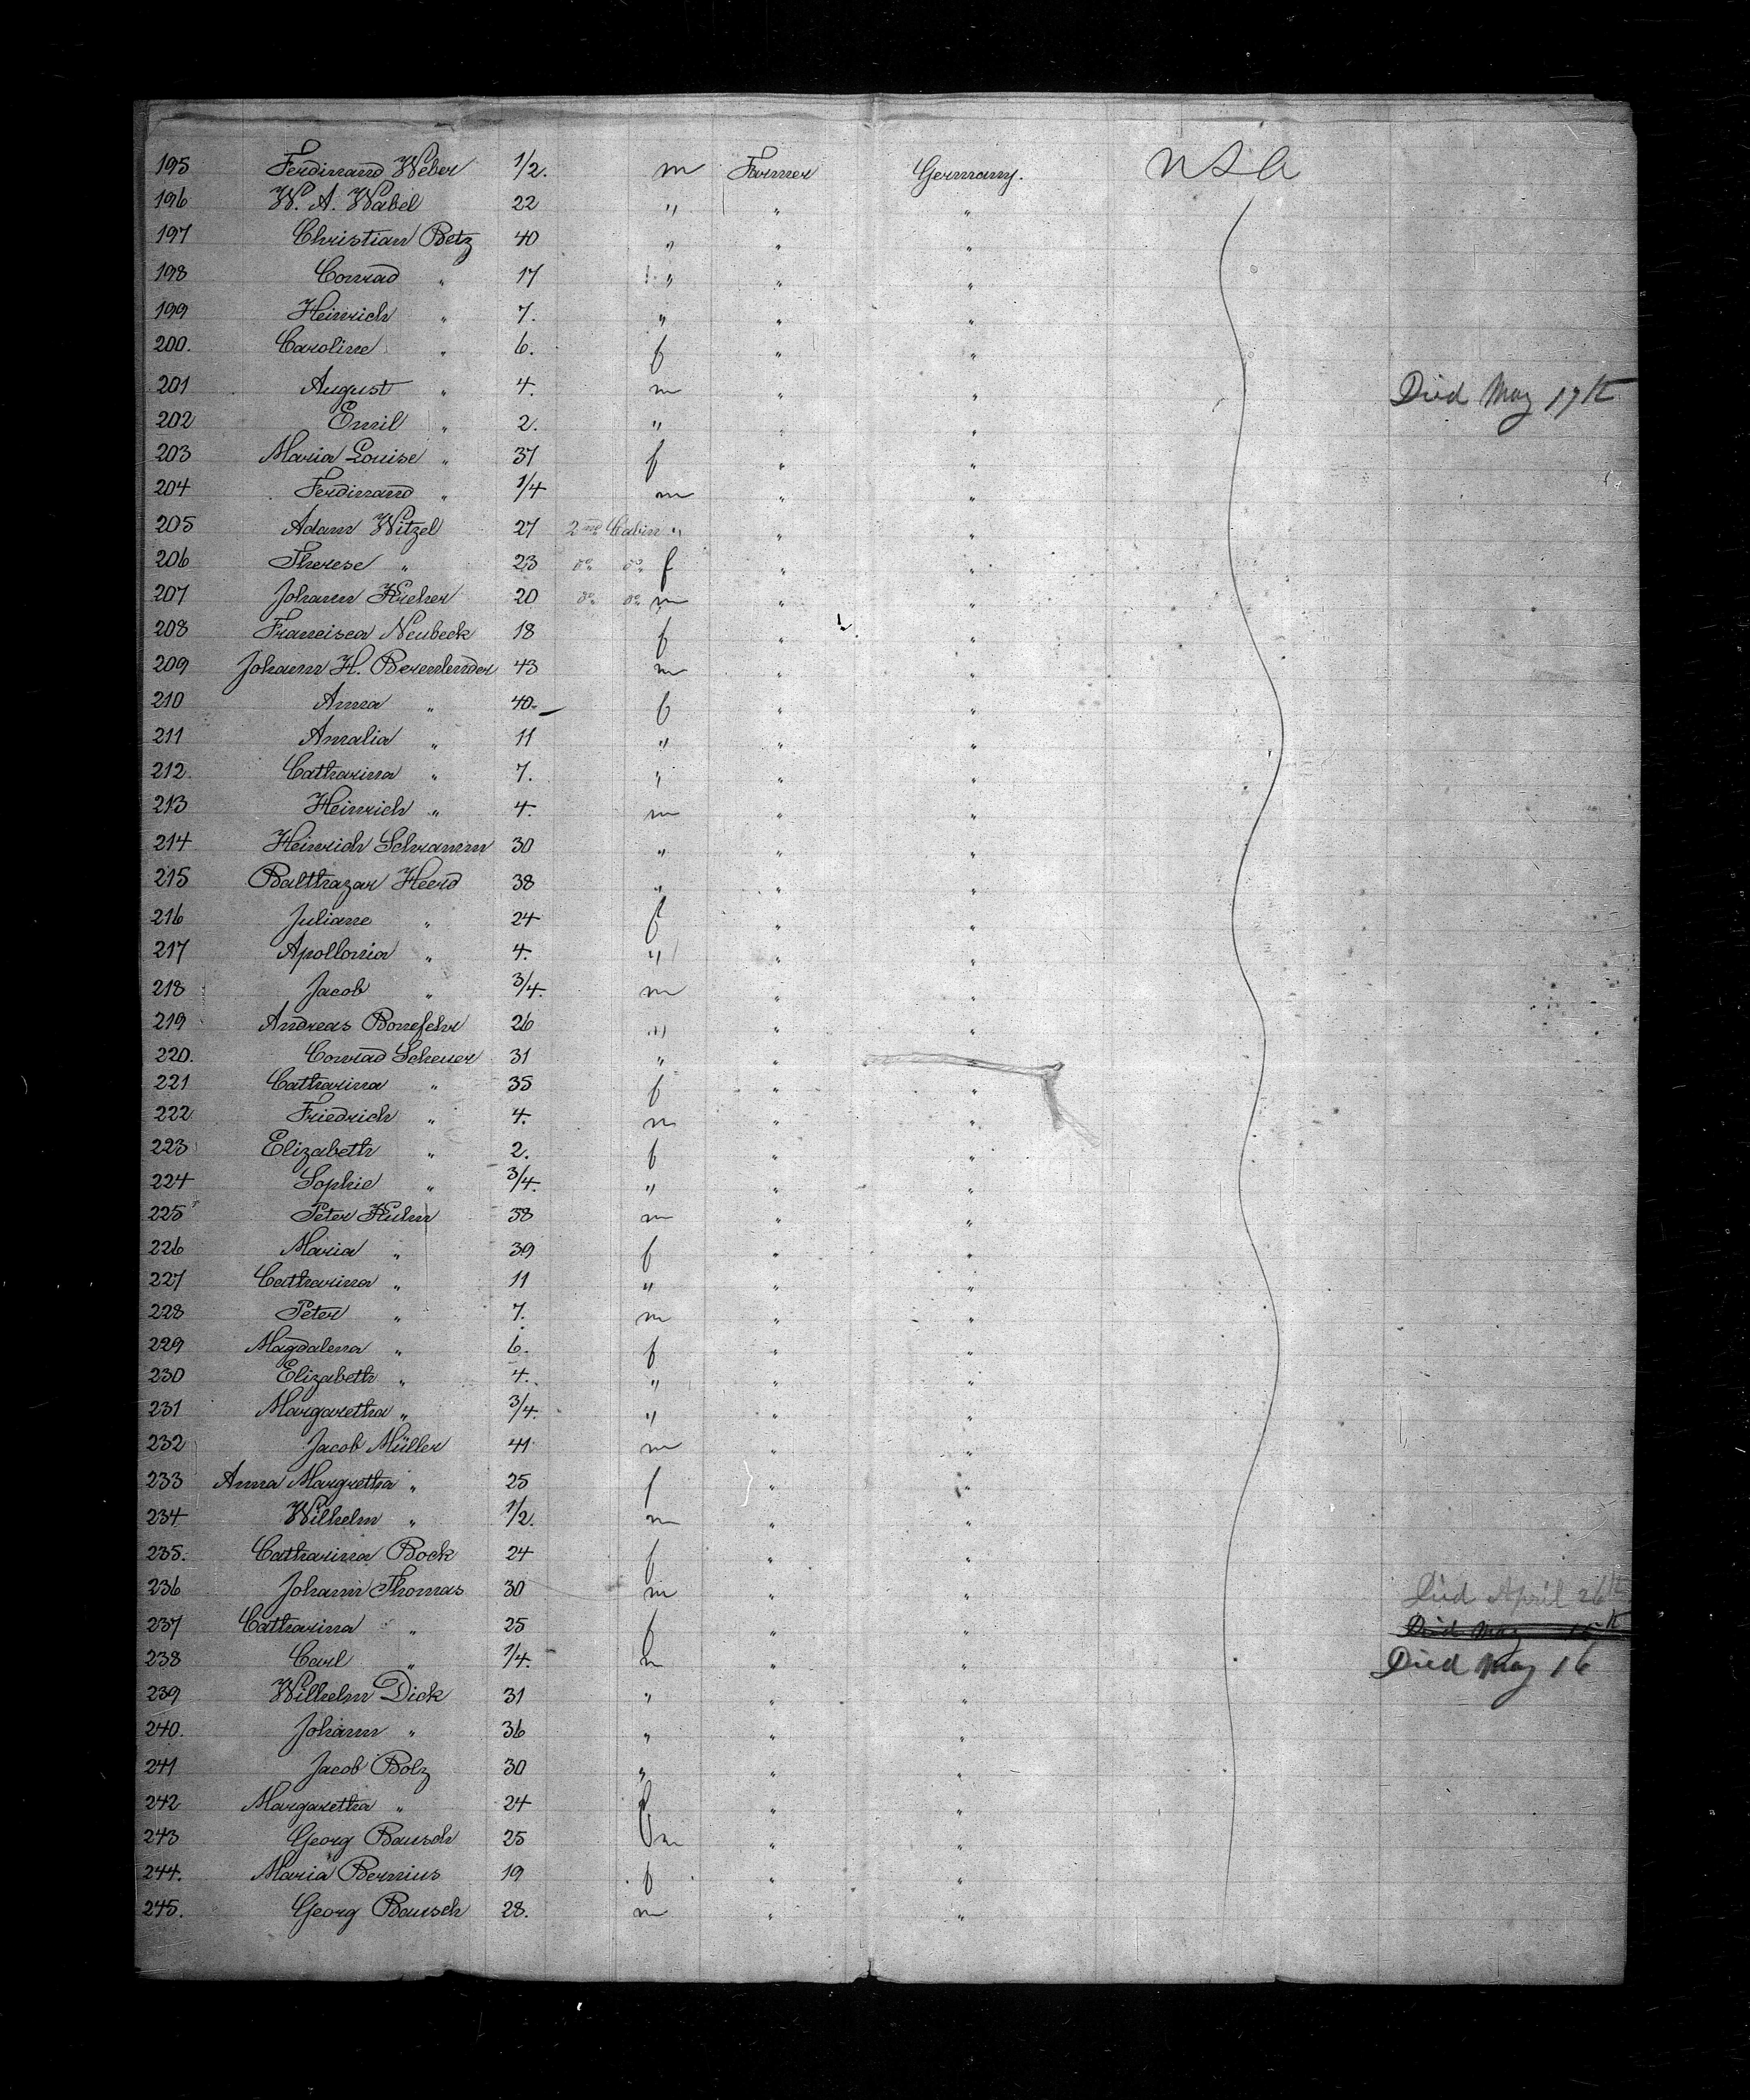 195 Ferdinand Weber 1/2. m Farmer Germany. USA
196 W. A. Wabel 22 " " "
197 Christian Betz 40 " " "
198 Conrad " 17 " " "
199 Heinrich " 7. " " "
200. Caroline " 6. f " "
201 August " 4. m " " Died May 17th
202 Emil " 2. " " "
203 Maria Louise " 37 f " "
204 Ferdinand " 1/4 m " "
205 Adam Witzel 27 2nd Cabin " " "
206 Therese " 23 do do f " "
207 Johann 20 do do m " "
208 Francisca Neubeck 18 f " "
209 Johann H. 43 m " "
210 Anna " 40. f " "
211 Amalia " 11 " " "
212. Catharina " 7. " " "
213 Heinrich " 4. m " "
214 Heinrich Schramm 30 " " "
215 Balthazar Heerd 38 " " "
216 Juliane " 24 f " "
217 Apollonia " 4. " " "
218 Jacob " 3/4. m " "
219 Andreas Bonefehr 26 " " "
220. Conrad Scheuer 31 " " "
221 Catharina " 35 f " "
222 Friedrich " 4. m " "
223 Elizabeth " 2. f " "
224 Sophie " 3/4. " " "
225 Peter Kuhn 38 m " "
226 Maria " 39 f " "
227 Catharina " 11 " " "
228 Peter " 7. m " "
229 Magdalena " 6. f " "
230 Elizabeth " 4. " " "
231 Margaretha " 3/4. " " "
232 Jacob Müller 41 m " "
233 Anna Margretha " 25 f " "
234 Wilhelm " 1/2. m " "
235. Catharina Bock 24 f " "
236 Johann Thomas 30 m " " Died April 26th
237 Catharina " 25 f " " Died May 15th
238 Carl " 1/4. m " " Died May 16
239 Wilhelm Dick 31 " " "
240. Johann " 36 " " "
241 Jacob Bolz 30 " " "
242 Margaretha " 24 f " "
243 Georg Bausch 25 m " "
244. Maria Bernius 19 f " "
245. Georg Bausch 28. m " "